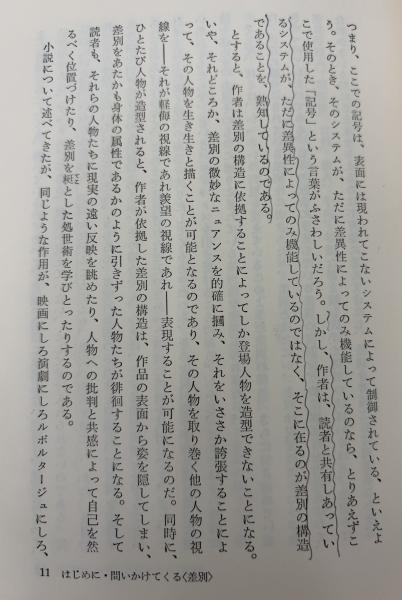 つまり、ここでの記号は、表面には現われてこないシステムによって制御されている、といえよ
う。そのとき、そのシステムが、ただに差異性によってのみ機能しているのなら、とりあえずこ
こで使用した「記号」という言葉がふさわしいだろう。しかし、作者は、読者と共有しあってい
るシステムが、ただに差異性によってのみ機能しているのではなく、そこに在るのが差別の構造
であることを、熟知しているのである。
とすると、作者は差別の構造に依拠することによってしか登場人物を造型できないことになる。
いや、それどころか、差別の微妙なニュアンスを的確に摑み、それをいささか誇張することによ
って、その人物を生き生きと描くことが可能となるのであり、その人物を取り巻く他の人物の視
線を――それが軽侮の視線であれ羨望の視線であれ――表現することが可能になるのだ。同時に、
ひとたび人物が造型されると、作者が依拠した差別の構造は、作品の表面から姿を隠してしまい、
差別をあたかも身体の属性であるかのように引きずった人物たちが徘徊することになる。そして
読者も、それらの人物たちに現実の遠い反映を眺めたり、人物への批判と共感によって自己を然
るべく位置づけたり、差別を梃とした処世術を学びとったりするのである。
小説について述べてきたが、同じような作用が、映画にしろ演劇にしろルポルタージュにしろ、
11 はじめに・問いかけてくる〈差別〉